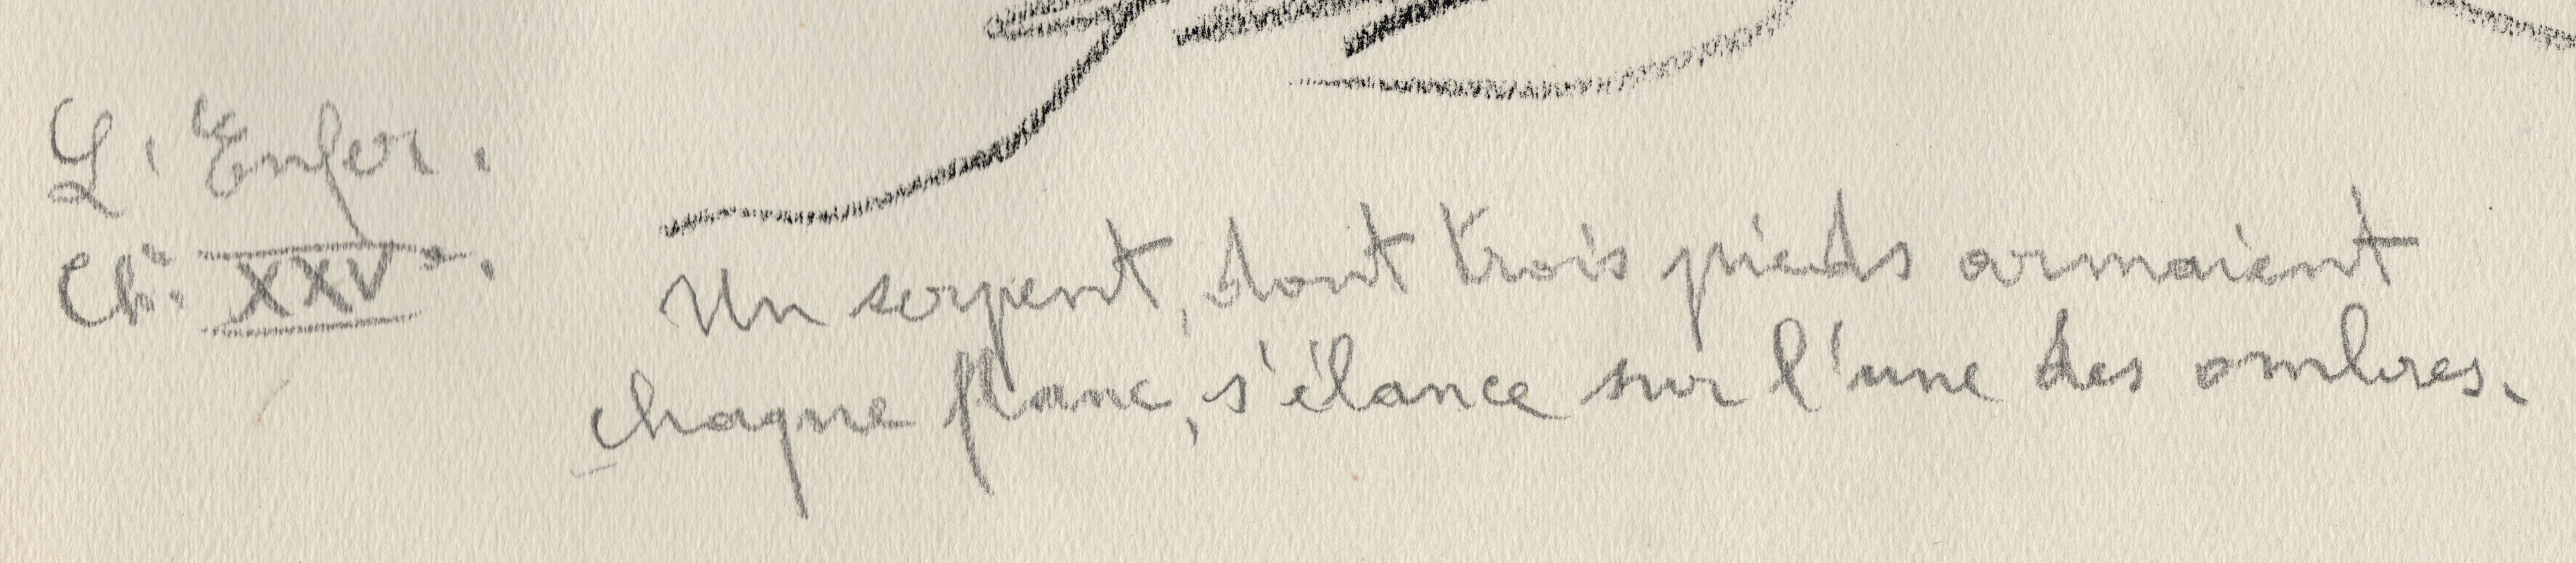 L'Enfer.
Ch: XXV.
Un serpent, dont trois pieds armaient
chaque flanc, s'élance sur l'une des ombres.